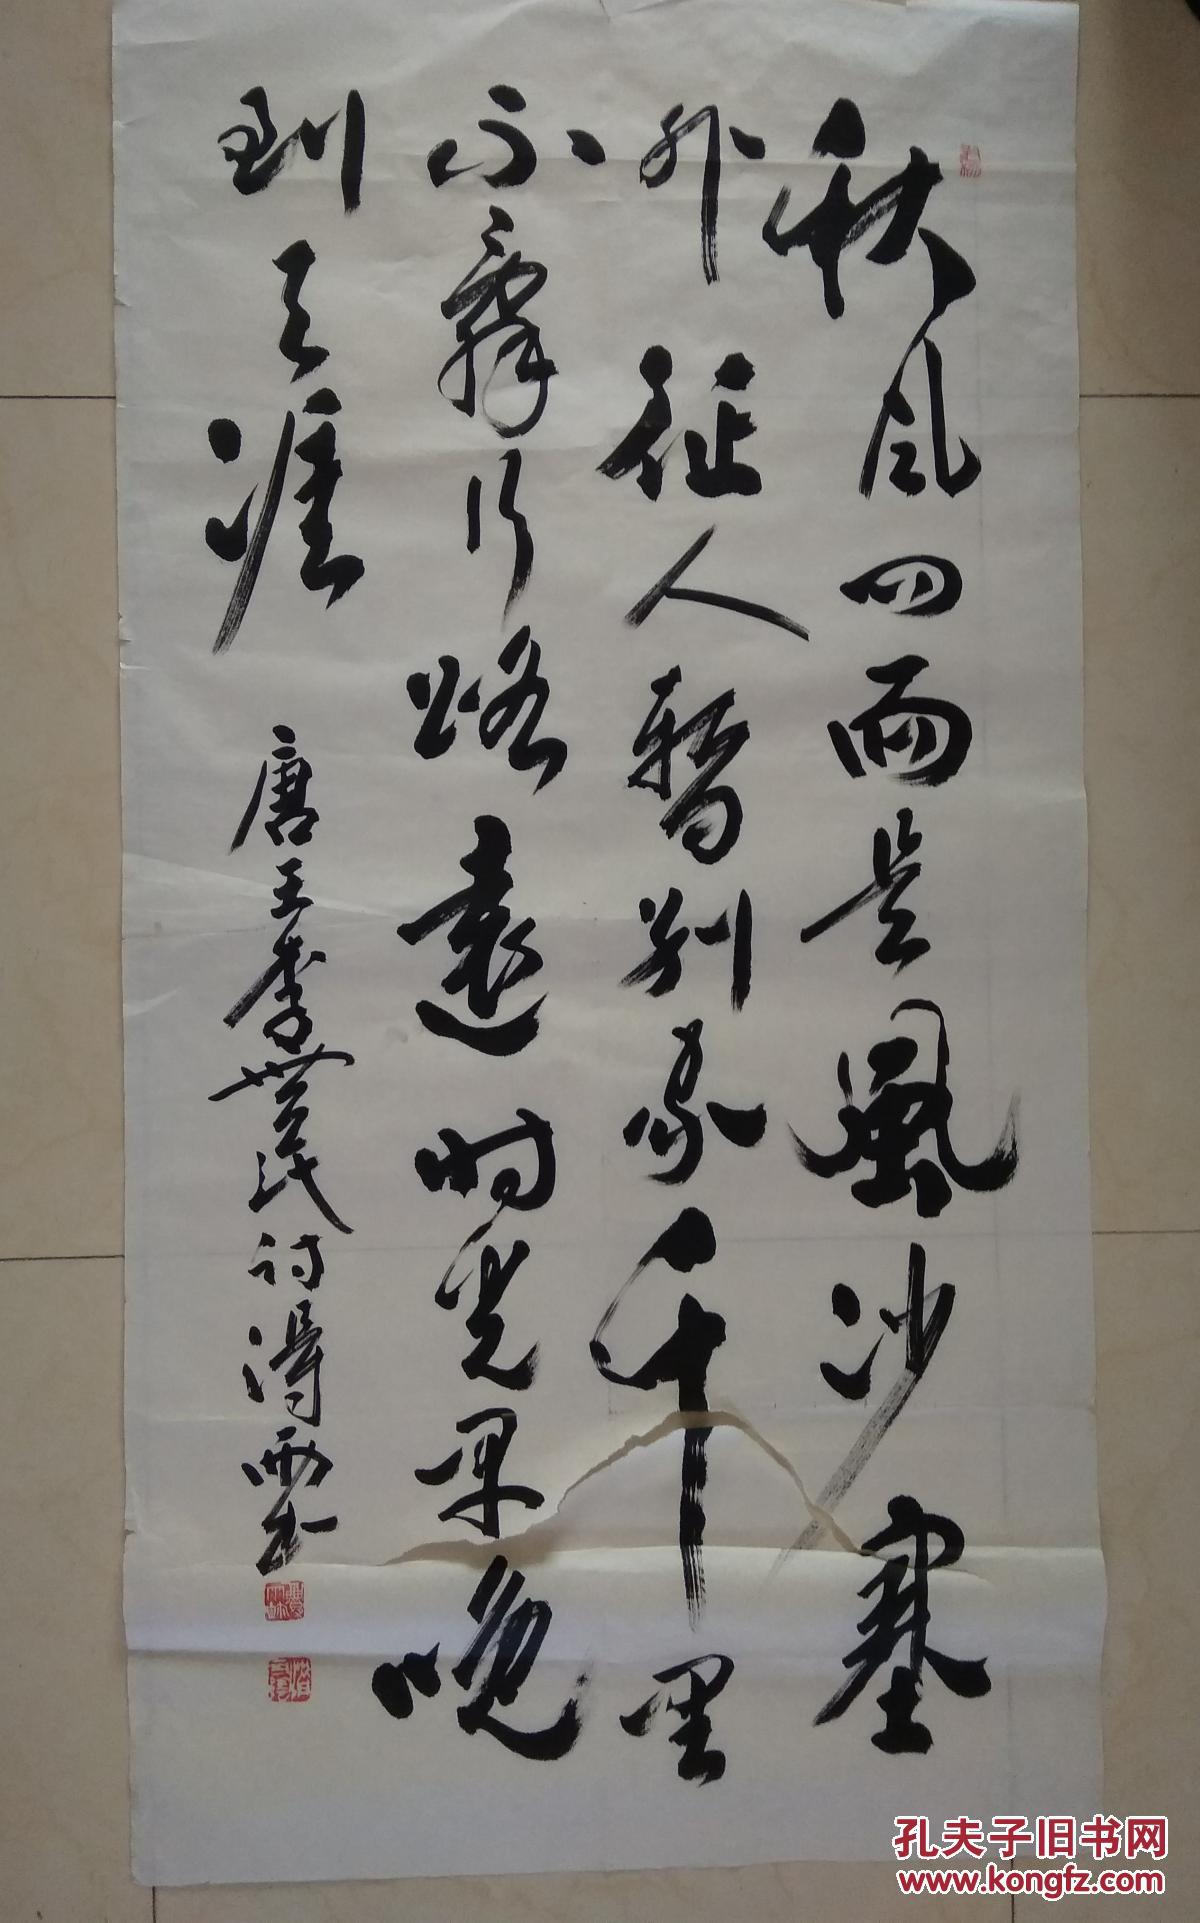 秋风四面足風沙塞
外征人暂别家千里
不辞行路远时光早晚
到天涯
唐王李世民诗濤西书
孔夫子旧书网
www.kongfz.com